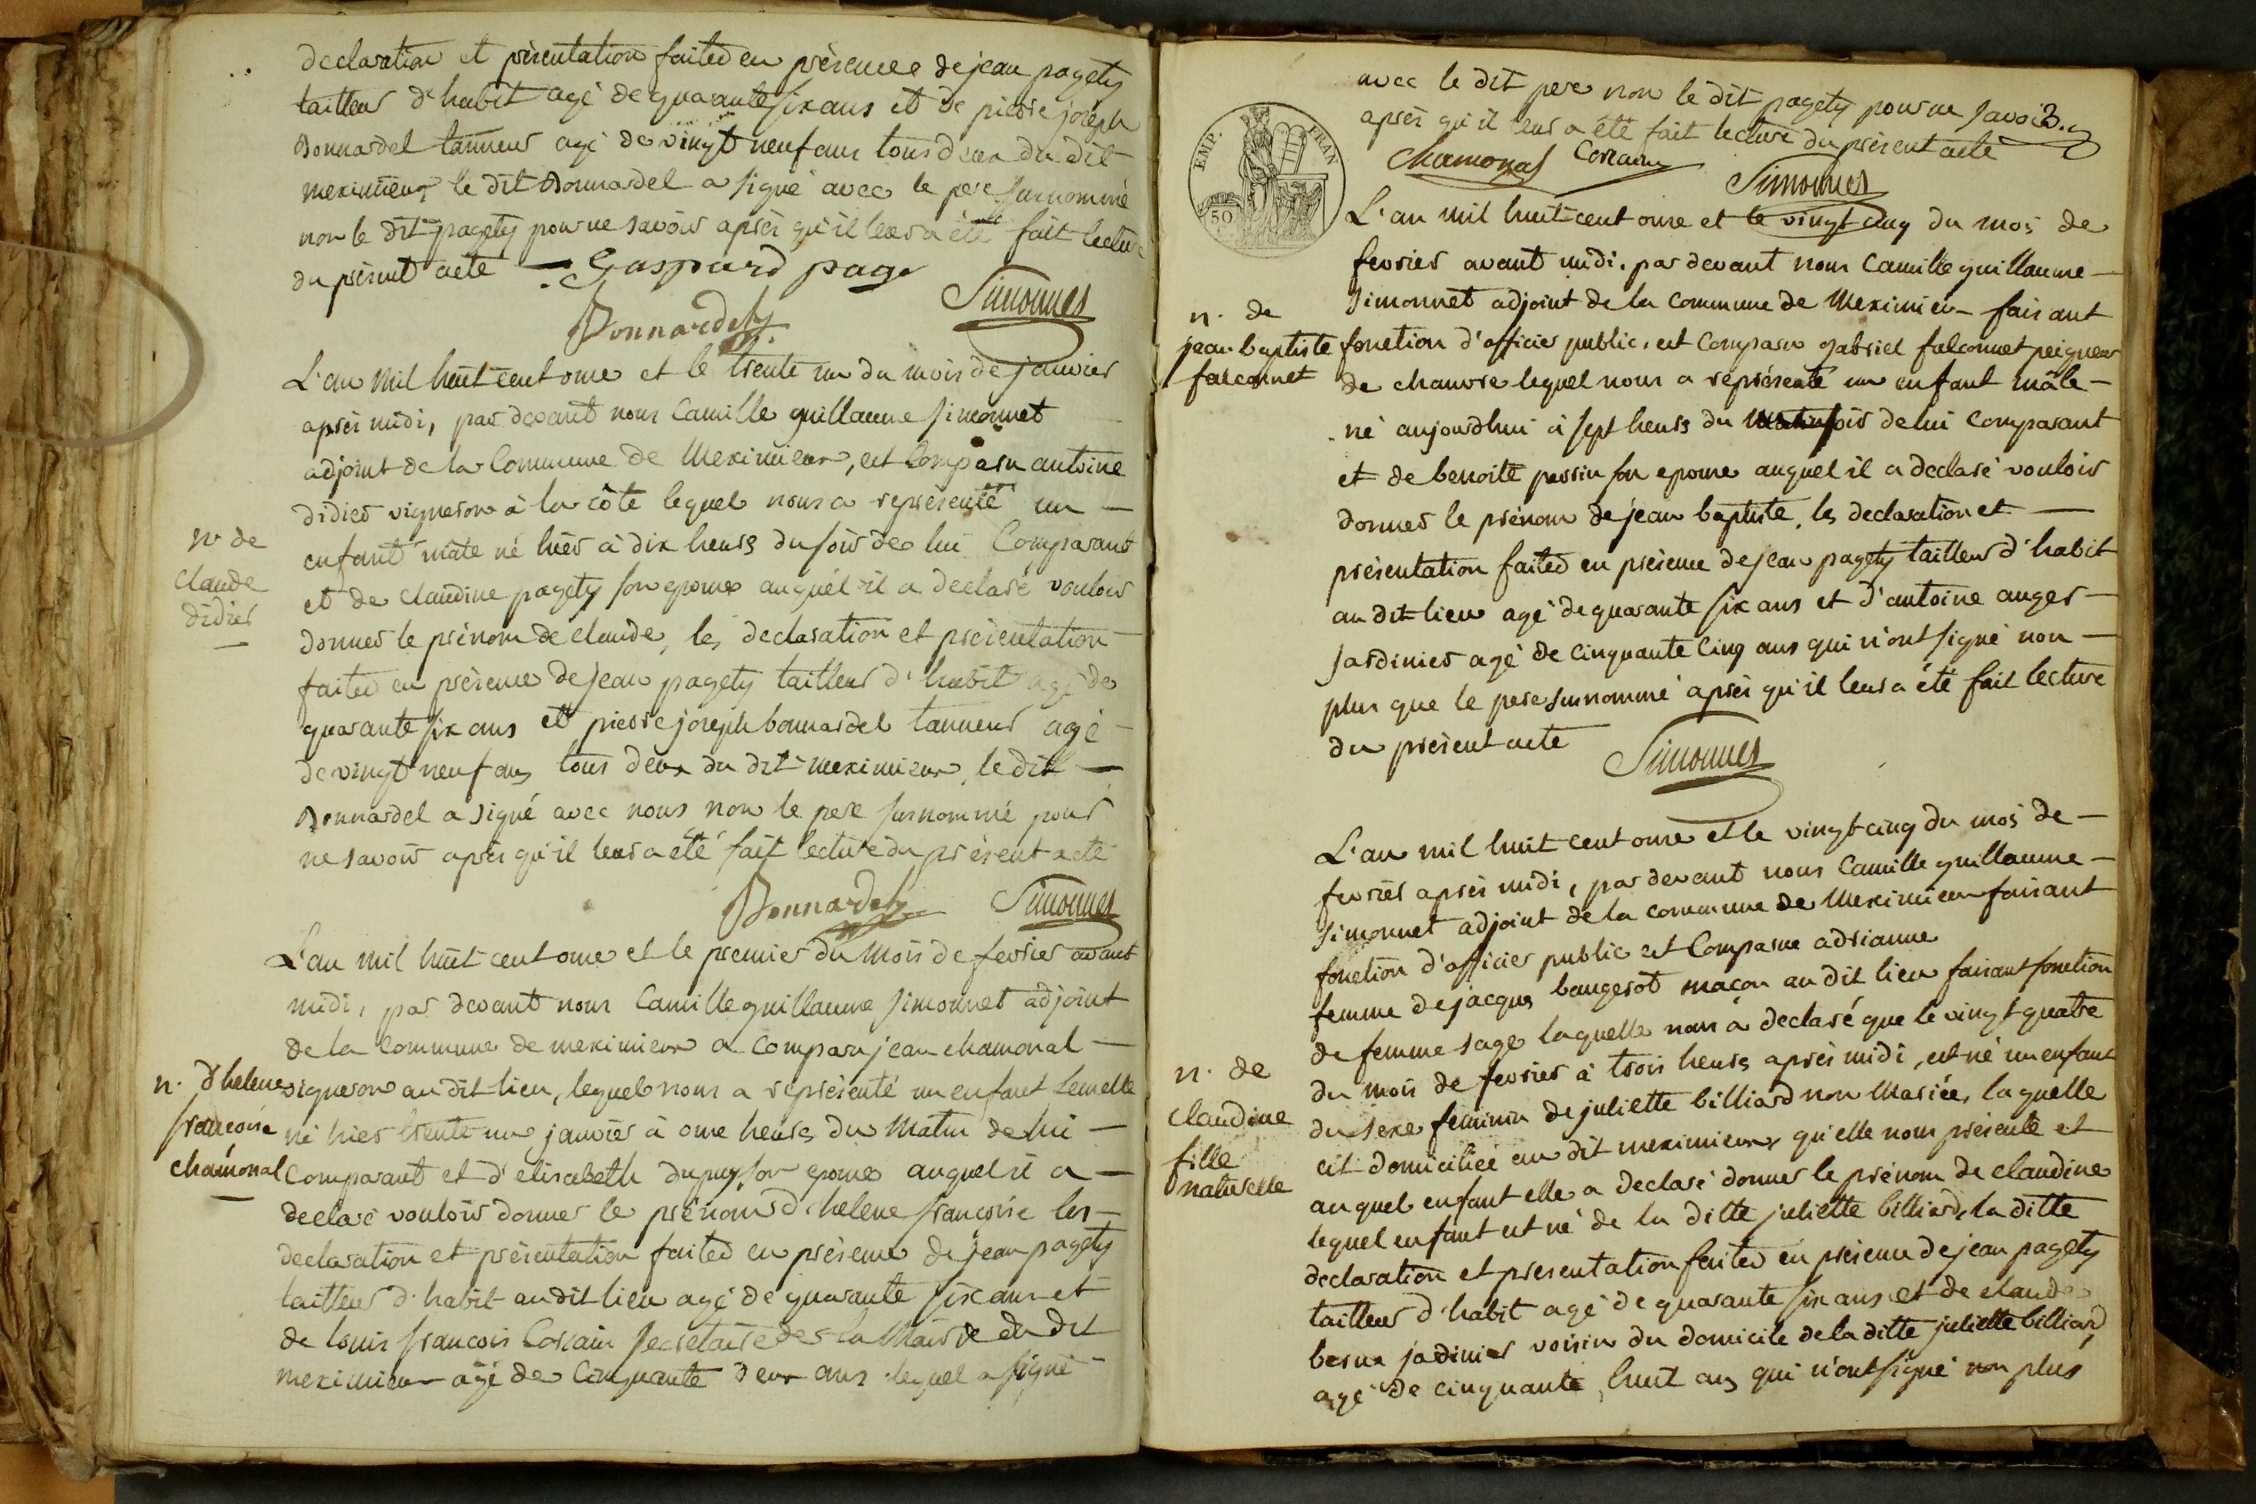 declaration et présentation faites en présence de jean pagety
tailleur d'habit agé de quarante six ans et de pierre joseph
Bonnardel tanneur agé de vingt neuf ans tous deux du dit
meximieux le dit Bonnardel a signé avec le pere surnommé
non le dit pagety pour ne savoir après qu'il leur a été fait lectu
du présent acte Gaspard page
Bonnardel Simonnet
L'an mil huit cent onze et le trente un du mois de janvier
après midi, par devant nous Camille guillaume simonnet
adjoint de la Commune de Meximieux, est Comparu antoine
didier vigneron à la côte lequel nous a représenté un
n. de
claude
didier
enfant mâle né hier à dix heures du soir de lui Comparant
et de Claudine pagety son epouse auquel il a declaré vouloir
donner le prénom de claude, les declaration et présentation
faites en présence de jean pagety tailleur d'habit agé de
quarante six ans et pierre joseph bonnardel tanneur agé
de vingt neuf ans tous deux du dit meximieux, le dit
Bonnardel a signé avec nous non le pere surnommé pour
ne savoir après qu'il leur a été fait lecture du présent acte
Bonnardel Simonnet
L'an mil huit cent onze et le premier du Mois de fevrier avant
midi, par devant nous Camille guillaume simonnet adjoint
de la Commune de meximieux a comparu jean chamonal
n. d'helene
françoise
chamonal
vigneron au dit lieu, lequel nous a représenté un enfant femelle
né hier trente un janvier à onze heures du Matin de lui
Comparant et d'elisabeth dupuy son epouse auquel il a
declaré vouloir donner le prénom d'helene françoise les
declaration et présentation faites en présence de jean pagety
tailleur d'habit au dit lieu agé de quarante six ans et
de louis françois Corcain secretaire de la Mairie du dit
meximieux agé de Cinquante deux ans lequel a signé
avec le dit pere non le dit pagety pour ne savoir
après qu'il leur a été fait lecture du présent acte
3.
EMP. FRAN
50
chamonal Corcain Simonnet
L'an mil huit cent onze et le vingt cinq du mois de
fevrier avant midi, par devant nous Camille guillaume
simonnet adjoint de la Commune de Meximieux faisant
n. de
jean baptiste
falconnet
fonction d'officier public, est Comparu gabriel falconnet peigneur
de chanvre lequel nous a représenté un enfant mâle
né aujourdhui à sept heures du matin soir de lui Comparant
et de benoite perrin son epouse auquel il a declaré vouloir
donner le prénom de jean baptiste, les declaration et
présentation faites en présence de jean pagety tailleur d'habit
au dit lieu agé de quarante six ans et d'antoine auger
jardinier agé de cinquante cinq ans qui n'ont signé non
plus que le pere surnommé après qu'il leur a été fait lecture
du présent acte Simonnet
L'an mil huit cent onze et le vingt cinq du mois de
fevrier après midi, par devant nous Camille guillaume
simonnet adjoint de la commune de Meximieux faisant
fonction d'officier public est Comparue adrianne
femme de jacques baugerot maçon au dit lieu faisant fonction
de femme sage laquelle nous a declaré que le vingt quatre
n. de
claudine
fille
naturelle
du mois de fevrier à trois heures après midi, est né un enfant
du sexe feminin de juliette billiard non Mariée, laquelle
est domiciliée au dit meximieux, qu'elle nous présente et
auquel enfant elle a declaré donner le prénom de claudine
lequel enfant est né de la ditte juliette billiard, la ditte
declaration et presentation faites en présence de jean pagety
tailleur d'habit agé de quarante six ans et de claude
berne jadinier voisin du domicile de la ditte juliette billiard
agé de cinquante huit ans qui n'ont signé non plus